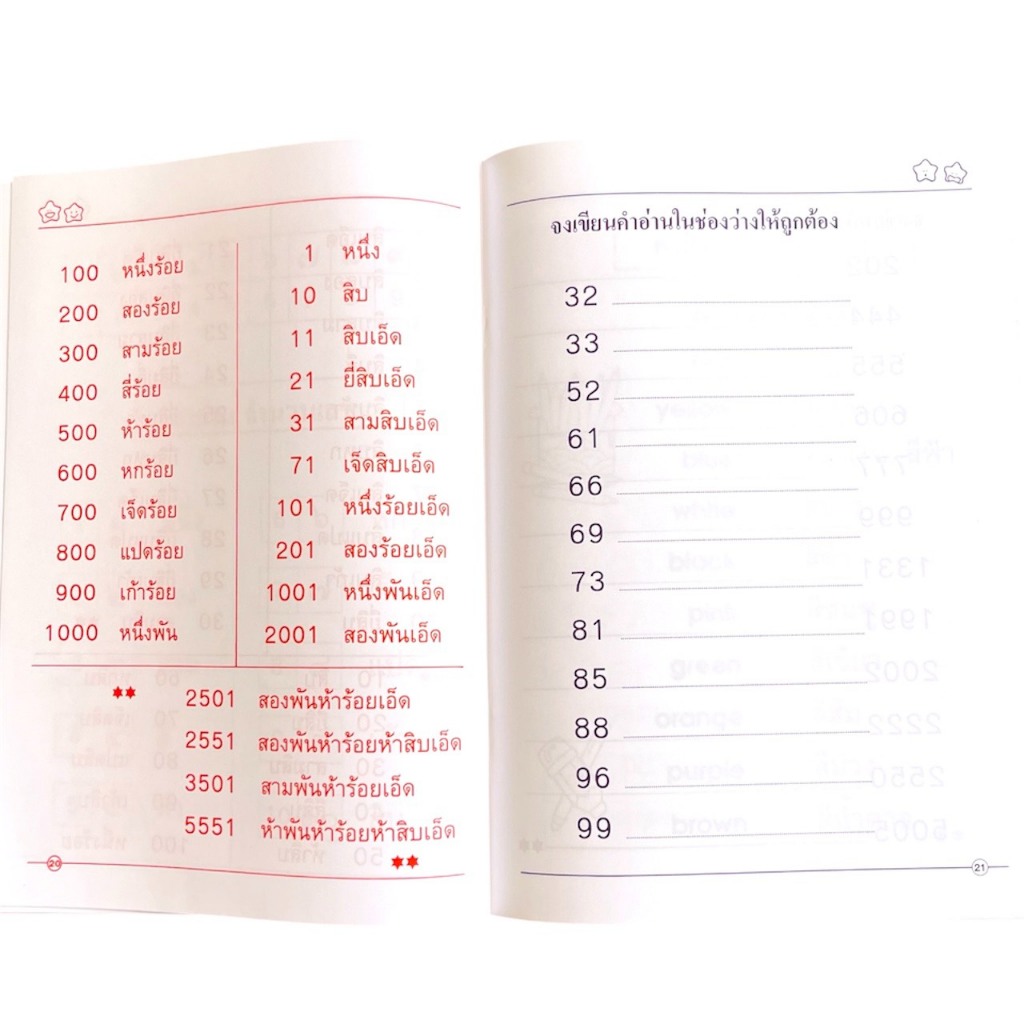 100 หนึ่งร้อย
200 สองร้อย
300 สามร้อย
400 สี่ร้อย
500 ห้าร้อย
600 หกร้อย
700 เจ็ดร้อย
800 แปดร้อย
900 เก้าร้อย
1000 หนึ่งพัน
1 หนึ่ง
10 สิบ
11 สิบเอ็ด
21 ยี่สิบเอ็ด
31 สามสิบเอ็ด
71 เจ็ดสิบเอ็ด
101 หนึ่งร้อยเอ็ด
201 สองร้อยเอ็ด
1001 หนึ่งพันเอ็ด
2001 สองพันเอ็ด
2501 สองพันห้าร้อยเอ็ด
2551 สองพันห้าร้อยห้าสิบเอ็ด
3501 สามพันห้าร้อยเอ็ด
5551 ห้าพันห้าร้อยห้าสิบเอ็ด
20
จงเขียนคำอ่านในช่องว่างให้ถูกต้อง
32
33
52
61
66
69
73
81
85
88
96
99
21